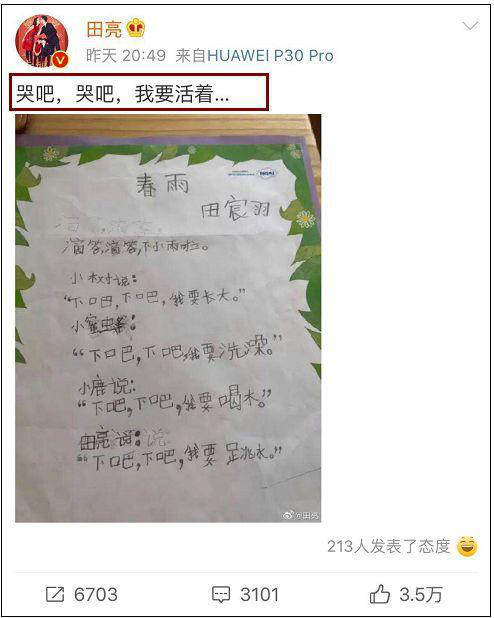 田亮
昨天 20:49 来自HUAWEI P30 Pro
哭吧，哭吧，我要活着...
春雨
田宸羽
滴答,滴答,
滴答,滴答,下小雨啦。
小树说:
“下吧,下吧,我要长大。”
小蜜
“下吧,下吧,我要洗澡。”
小鹿说:
“下吧,下吧,我要喝水。”
田亮说:说
“下吧,下吧,我要跳水。”
@田亮
213人发表了态度
6703
3101
3.5万